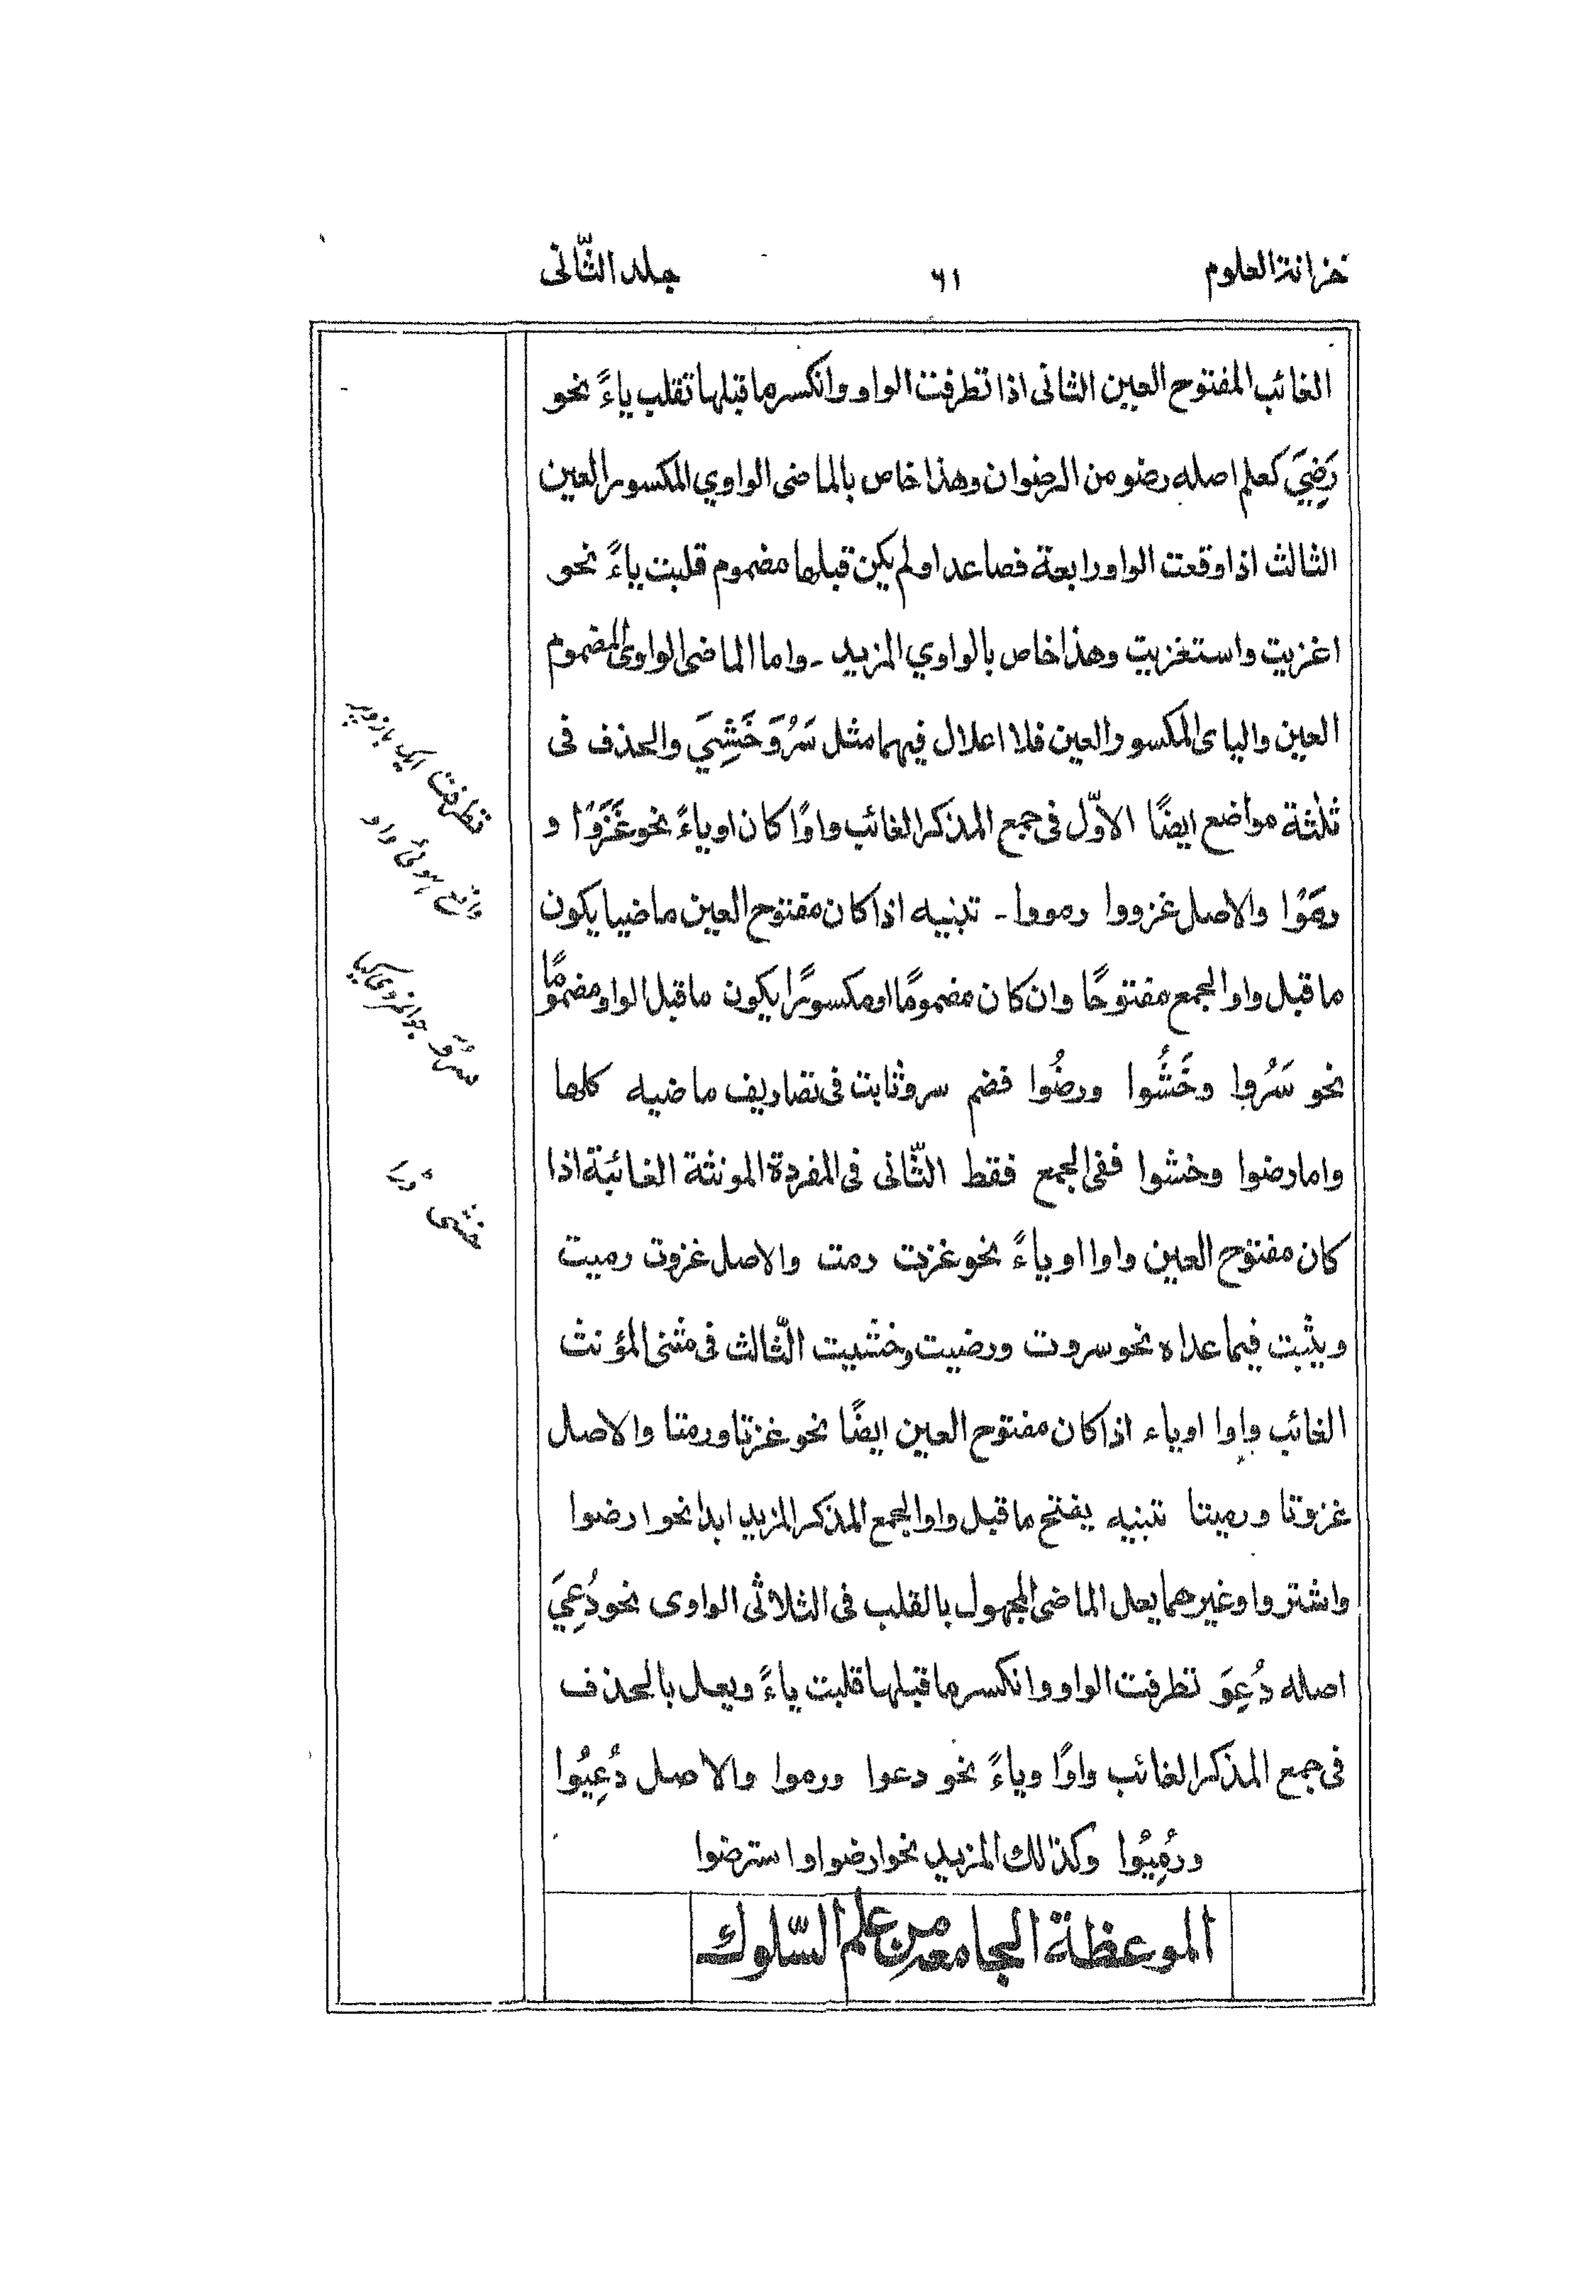 خزانة العلوم ٦١ جلد الثّانى
الغائب المفتوح العين الثانى اذا تطرفت الواو وانكسر ما قبلها تقلب ياءً نحو
رَضِيَ كعلم اصله رضو من الرضوان وهذا خاص بالماضى الواوي المكسور العين
الثالث اذا وقعت الواو رابعة فصاعدا ولم يكن قبلها مضموم قلبت ياءً نحو
اغزيت واستغزيت وهذا خاص بالواوي المزيد ـ واما الماضى الواوى المضموم
العين والياى المكسور العين فلا اعلال فيهما مثل سَرُوَ خَشِيَ والحذف فى
ثلٰثة مواضع ايضًا الاوّل فى جمع المذكر الغائب واوًا كان او ياءً نحو غَزَوْا و
رمَوْا والاصل غزووا رمووا ـ تنبيه اذا كان مفتوح العين ماضيا يكون
ما قبل واو الجمع مفتوحًا وان كان مضمومًا او مكسورًا يكون ما قبل الواو مضمومًا
نحو سَرُوا وخَشُوا ورضُوا فضم سروثابت فى تصاريف ماضيه كلها
واما رضوا وخشوا ففى الجمع فقط الثّانى فى المفردة المونثة الغائبة اذا
كان مفتوح العين واوا او ياءً نحو غزت رمت والاصل غزوت رميت
ويثبت فيما عداه نحو سروت ورضيت وخشيت الثّالث فى مثنى المؤنث
الغائب واوا او ياء اذا كان مفتوح العين ايضًا نحو غزتا ورمتا والاصل
غزوتا ورميتا تنبيه يفتح ما قبل واو الجمع المذكر المزيد ابدا نحو ارضوا
واشتروا وغيرهما يعل الماضى المجهول بالقلب فى الثلاثى الواوى نحو دُعِيَ
اصله دُعِوَ تطرفت الواو وانكسر ما قبلها قلبت ياءً ويعل بالحذف
فى جمع المذكر الغائب واوًا وياءً نحو دعوا ورموا والاصل دُعِيُوا
ورُمِيُوا وكذلك المزيد نحو ارضوا واسترضوا
الموعظة الجامعه من علم السّلوك
تطرفت ايک بازو پر
واقع ہوئى واو
سَرُوَ جوانمردى کى
خشى ڈرا